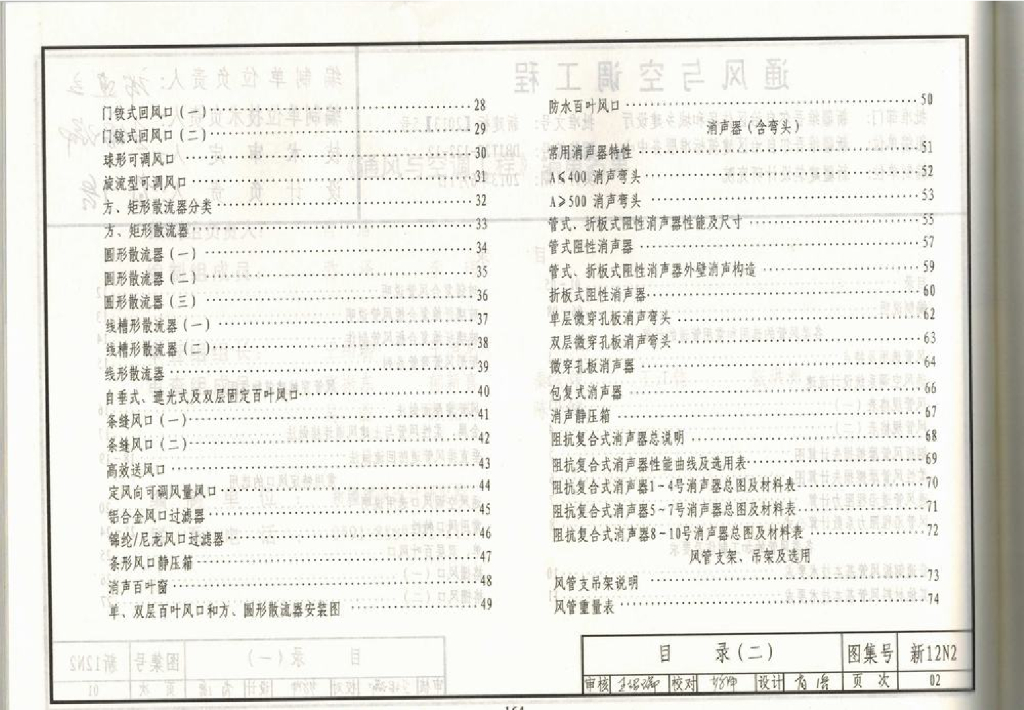 门铰式回风口(一) 28
门铰式回风口(二) 29
球形可调风口 30
旋流型可调风口 31
方、矩形散流器分类 32
方、矩形散流器 33
圆形散流器(一) 34
圆形散流器(二) 35
圆形散流器(三) 36
线槽形散流器(一) 37
线槽形散流器(二) 38
线形散流器 39
自垂式、遮光式及双层固定百叶风口 40
条缝风口(一) 41
条缝风口(二) 42
高效送风口 43
定风向可调风量风口 44
铝合金风口过滤器 45
锦纶/尼龙风口过滤器 46
条形风口静压箱 47
消声百叶窗 48
单、双层百叶风口和方、圆形散流器安装图 49
防水百叶风口 50
消声器(含弯头)
常用消声器特性 51
A≤400 消声弯头 52
A≥500 消声弯头 53
管式、折板式阻性消声器性能及尺寸 55
管式阻性消声器 57
管式、折板式阻性消声器外壁消声构造 59
折板式阻性消声器 60
单层微穿孔板消声弯头 62
双层微穿孔板消声弯头 63
微穿孔板消声器 64
包复式消声器 66
消声静压箱 67
阻抗复合式消声器总说明 68
阻抗复合式消声器性能曲线及选用表 69
阻抗复合式消声器1-4号消声器总图及材料表 70
阻抗复合式消声器5-7号消声器总图及材料表 71
阻抗复合式消声器8-10号消声器总图及材料表 72
风管支架、吊架及选用
风管支吊架说明 73
风管重量表 74
目 录(二) 图集号 新12N2
审核 校对 设计 页 次 02